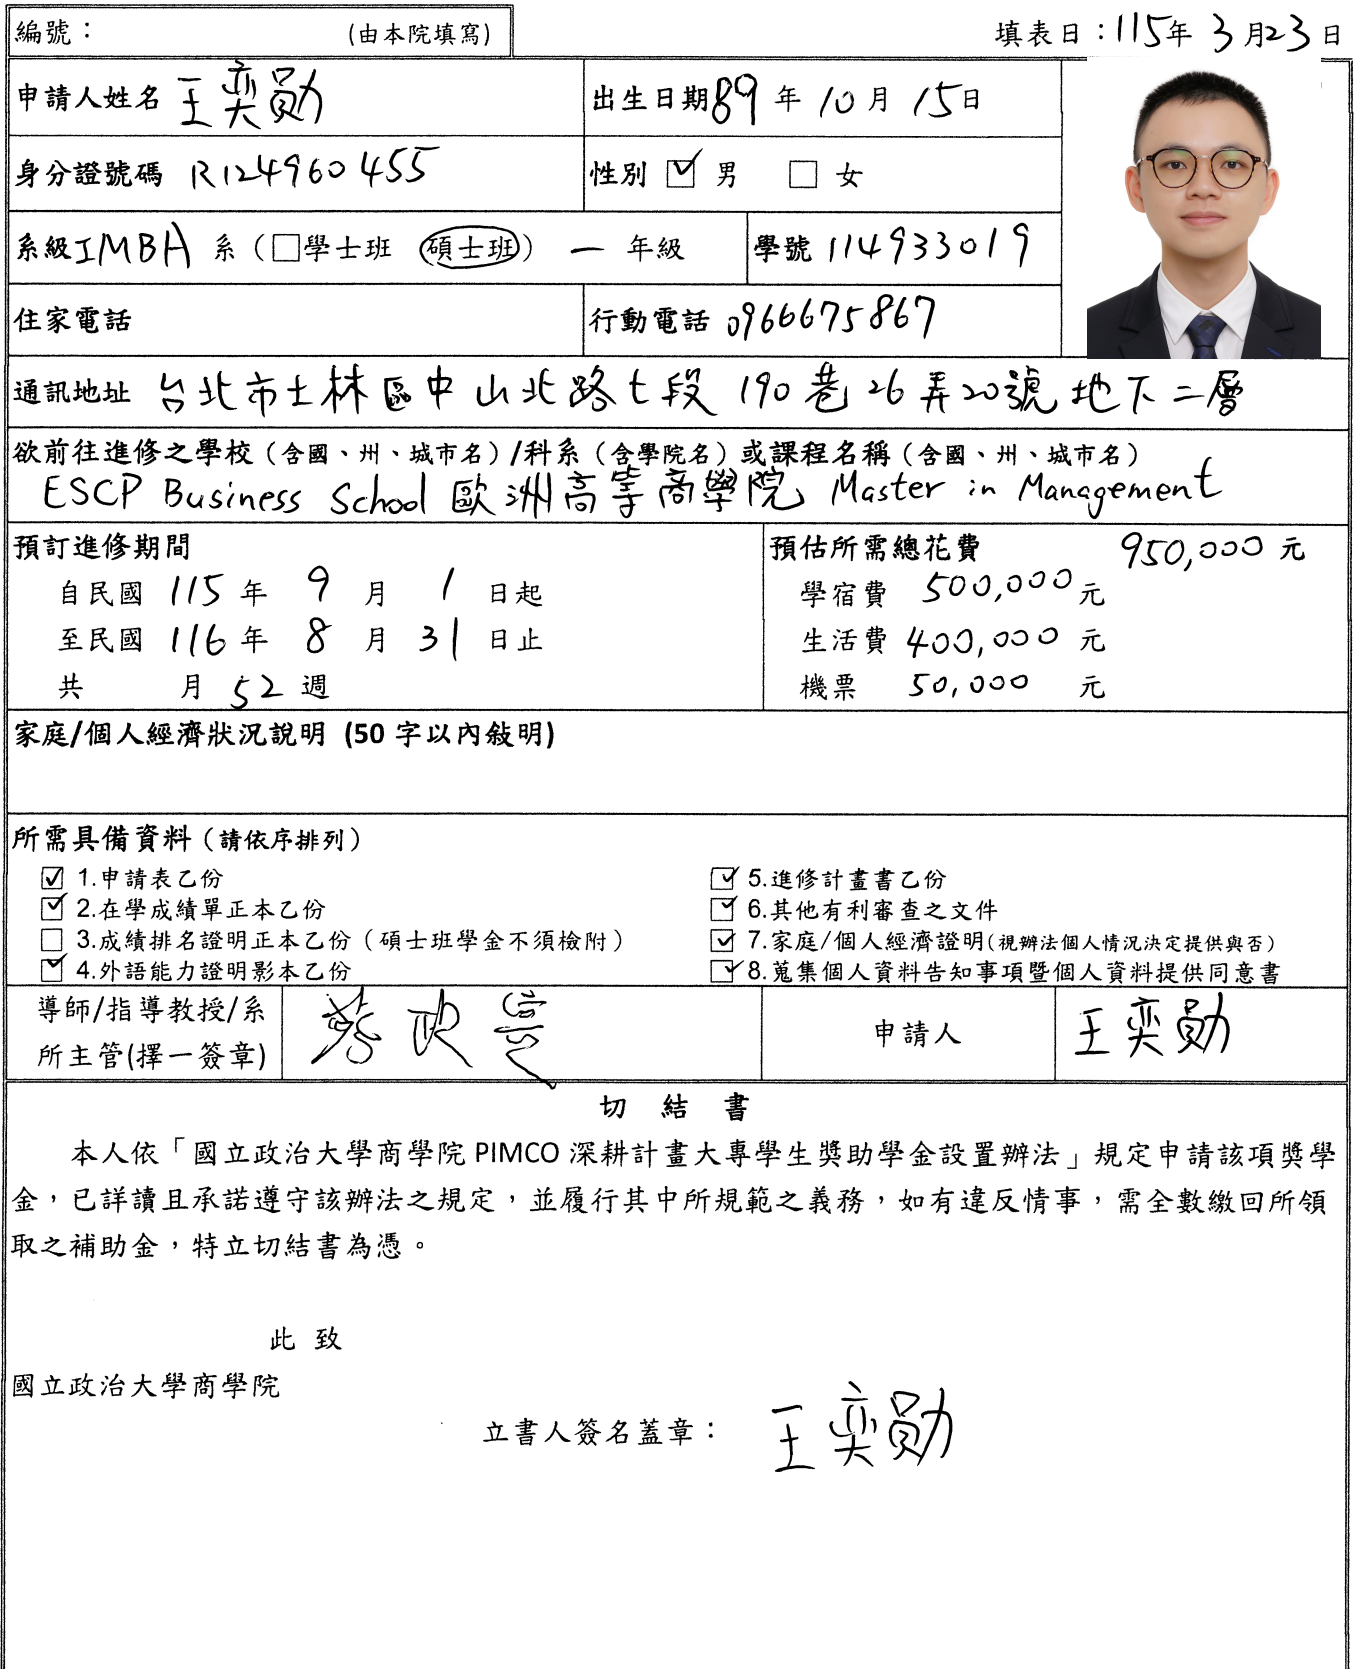 編號： (由本院填寫)
填表日：115年 3月23日
申請人姓名 王奕勛
出生日期 89 年 10 月 15日
身分證號碼 R124960455
性別 ☑ 男 □ 女
系級 IMBA 系（□學士班 碩士班） 一 年級
學號 114933019
住家電話
行動電話 0966675867
通訊地址 台北市士林區中山北路七段190巷26弄20號地下二層
欲前往進修之學校（含國、州、城市名）/科系（含學院名）或課程名稱（含國、州、城市名）
ESCP Business School 歐洲高等商學院, Master in Management
預訂進修期間
自民國 115 年 9 月 1 日起
至民國 116 年 8 月 31 日止
共 月 52 週
預估所需總花費 950,000 元
學宿費 500,000 元
生活費 400,000 元
機票 50,000 元
家庭/個人經濟狀況說明 (50 字以內敍明)
所需具備資料（請依序排列）
☑ 1.申請表乙份
☑ 2.在學成績單正本乙份
□ 3.成績排名證明正本乙份（碩士班學金不須檢附）
☑ 4.外語能力證明影本乙份
☑ 5.進修計畫書乙份
☑ 6.其他有利審查之文件
☑ 7.家庭/個人經濟證明(視辦法個人情況決定提供與否)
☑ 8.蒐集個人資料告知事項暨個人資料提供同意書
導師/指導教授/系
所主管(擇一簽章)
蔡政
申請人
王奕勛
切 結 書
本人依「國立政治大學商學院 PIMCO 深耕計畫大專學生獎助學金設置辦法」規定申請該項獎學
金，已詳讀且承諾遵守該辦法之規定，並履行其中所規範之義務，如有違反情事，需全數繳回所領
取之補助金，特立切結書為憑。
此 致
國立政治大學商學院
立書人簽名蓋章： 王奕勛